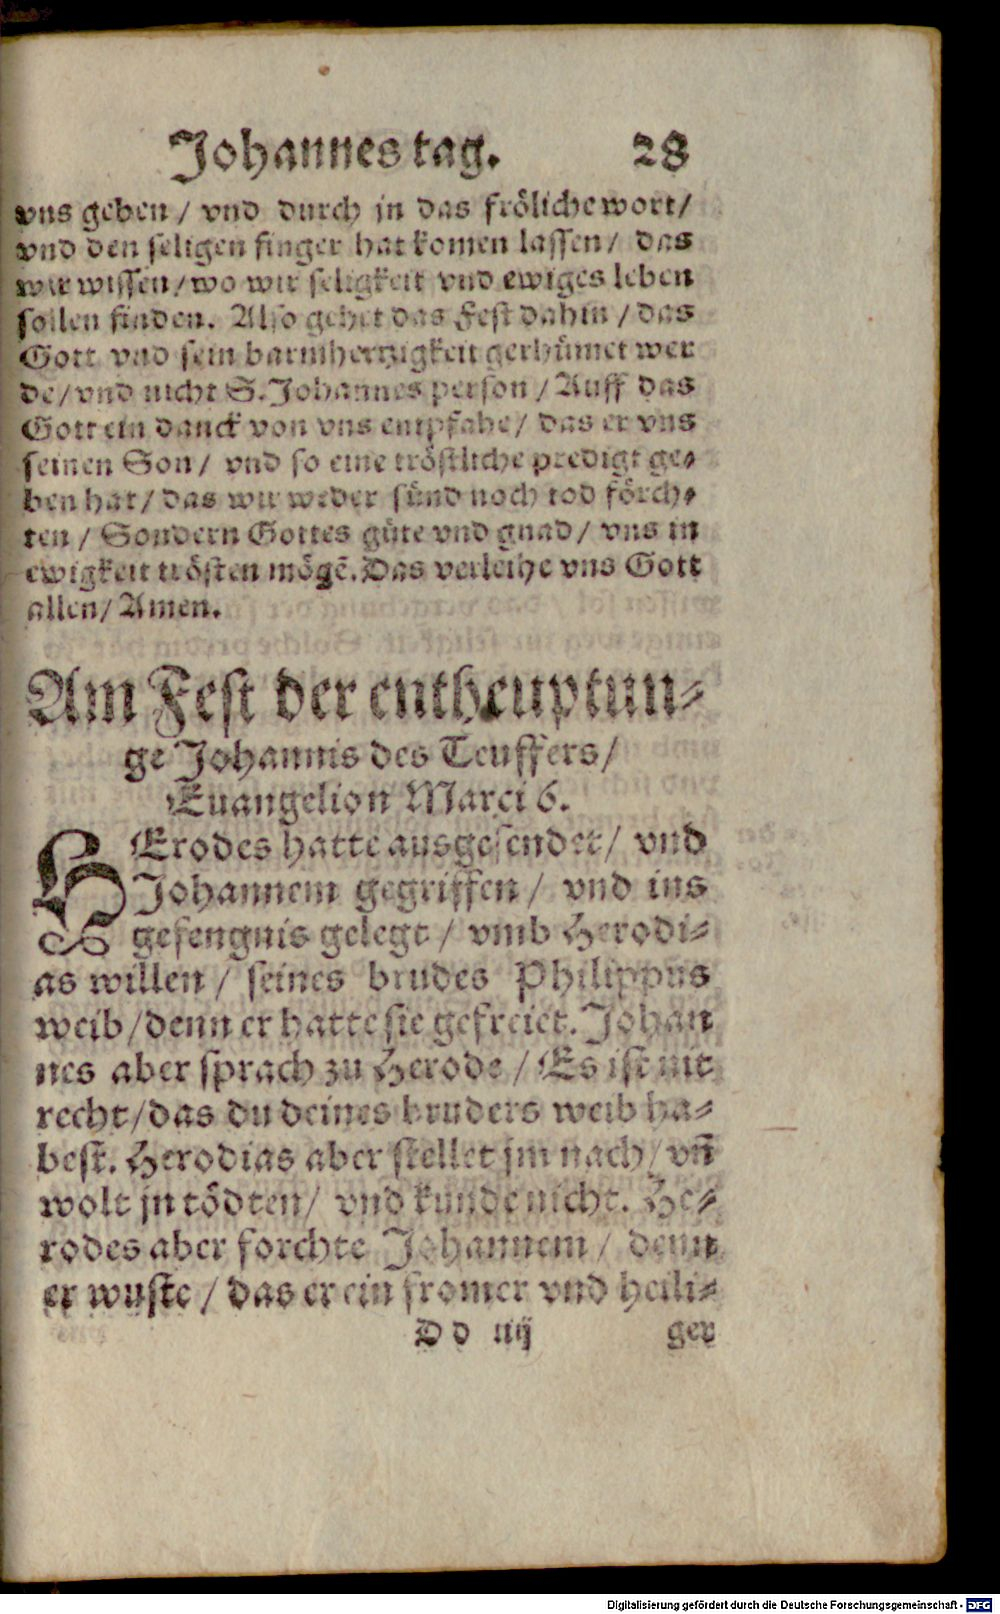 Johannes tag. 28
vns geben / vnd durch jn das fröliche wort /
vnd den seligen finger hat komen lassen / das
wir wissen / wo wir seligkeit vnd ewiges leben
sollen finden. Also gehet das Fest dahin / das
Gott vnd sein barmhertzigkeit gerhümet wer
de / vnd nicht S. Johannes person / Auff das
Gott ein danck von vns empfahe / das er vns
seinen Son / vnd so eine tröstliche predigt ge-
ben hat / das wir weder sünd noch tod förch-
ten / Sondern Gottes güte vnd gnad / vns in
ewigkeit trösten mögē. Das verleihe vns Gott
allen / Amen.
Am Fest der entheuptun-
ge Johannis des Teuffers /
Euangelion Marci 6.
HErodes hatte ausgesendet / vnd
Johannem gegriffen / vnd ins
gefengnis gelegt / vmb Herodi-
as willen / seines brudes Philippus
weib / denn er hatte sie gefreiet. Johan
nes aber sprach zu Herode / Es ist nit
recht / das du deines bruders weib ha-
best. Herodias aber stellet jm nach / vñ
wolt jn tödten / vnd kunde nicht. He-
rodes aber forchte Johannem / denn
er wuste / das er ein fromer vnd heili-
D d iiij ger
Digitalisierung gefördert durch die Deutsche Forschungsgemeinschaft - DFG